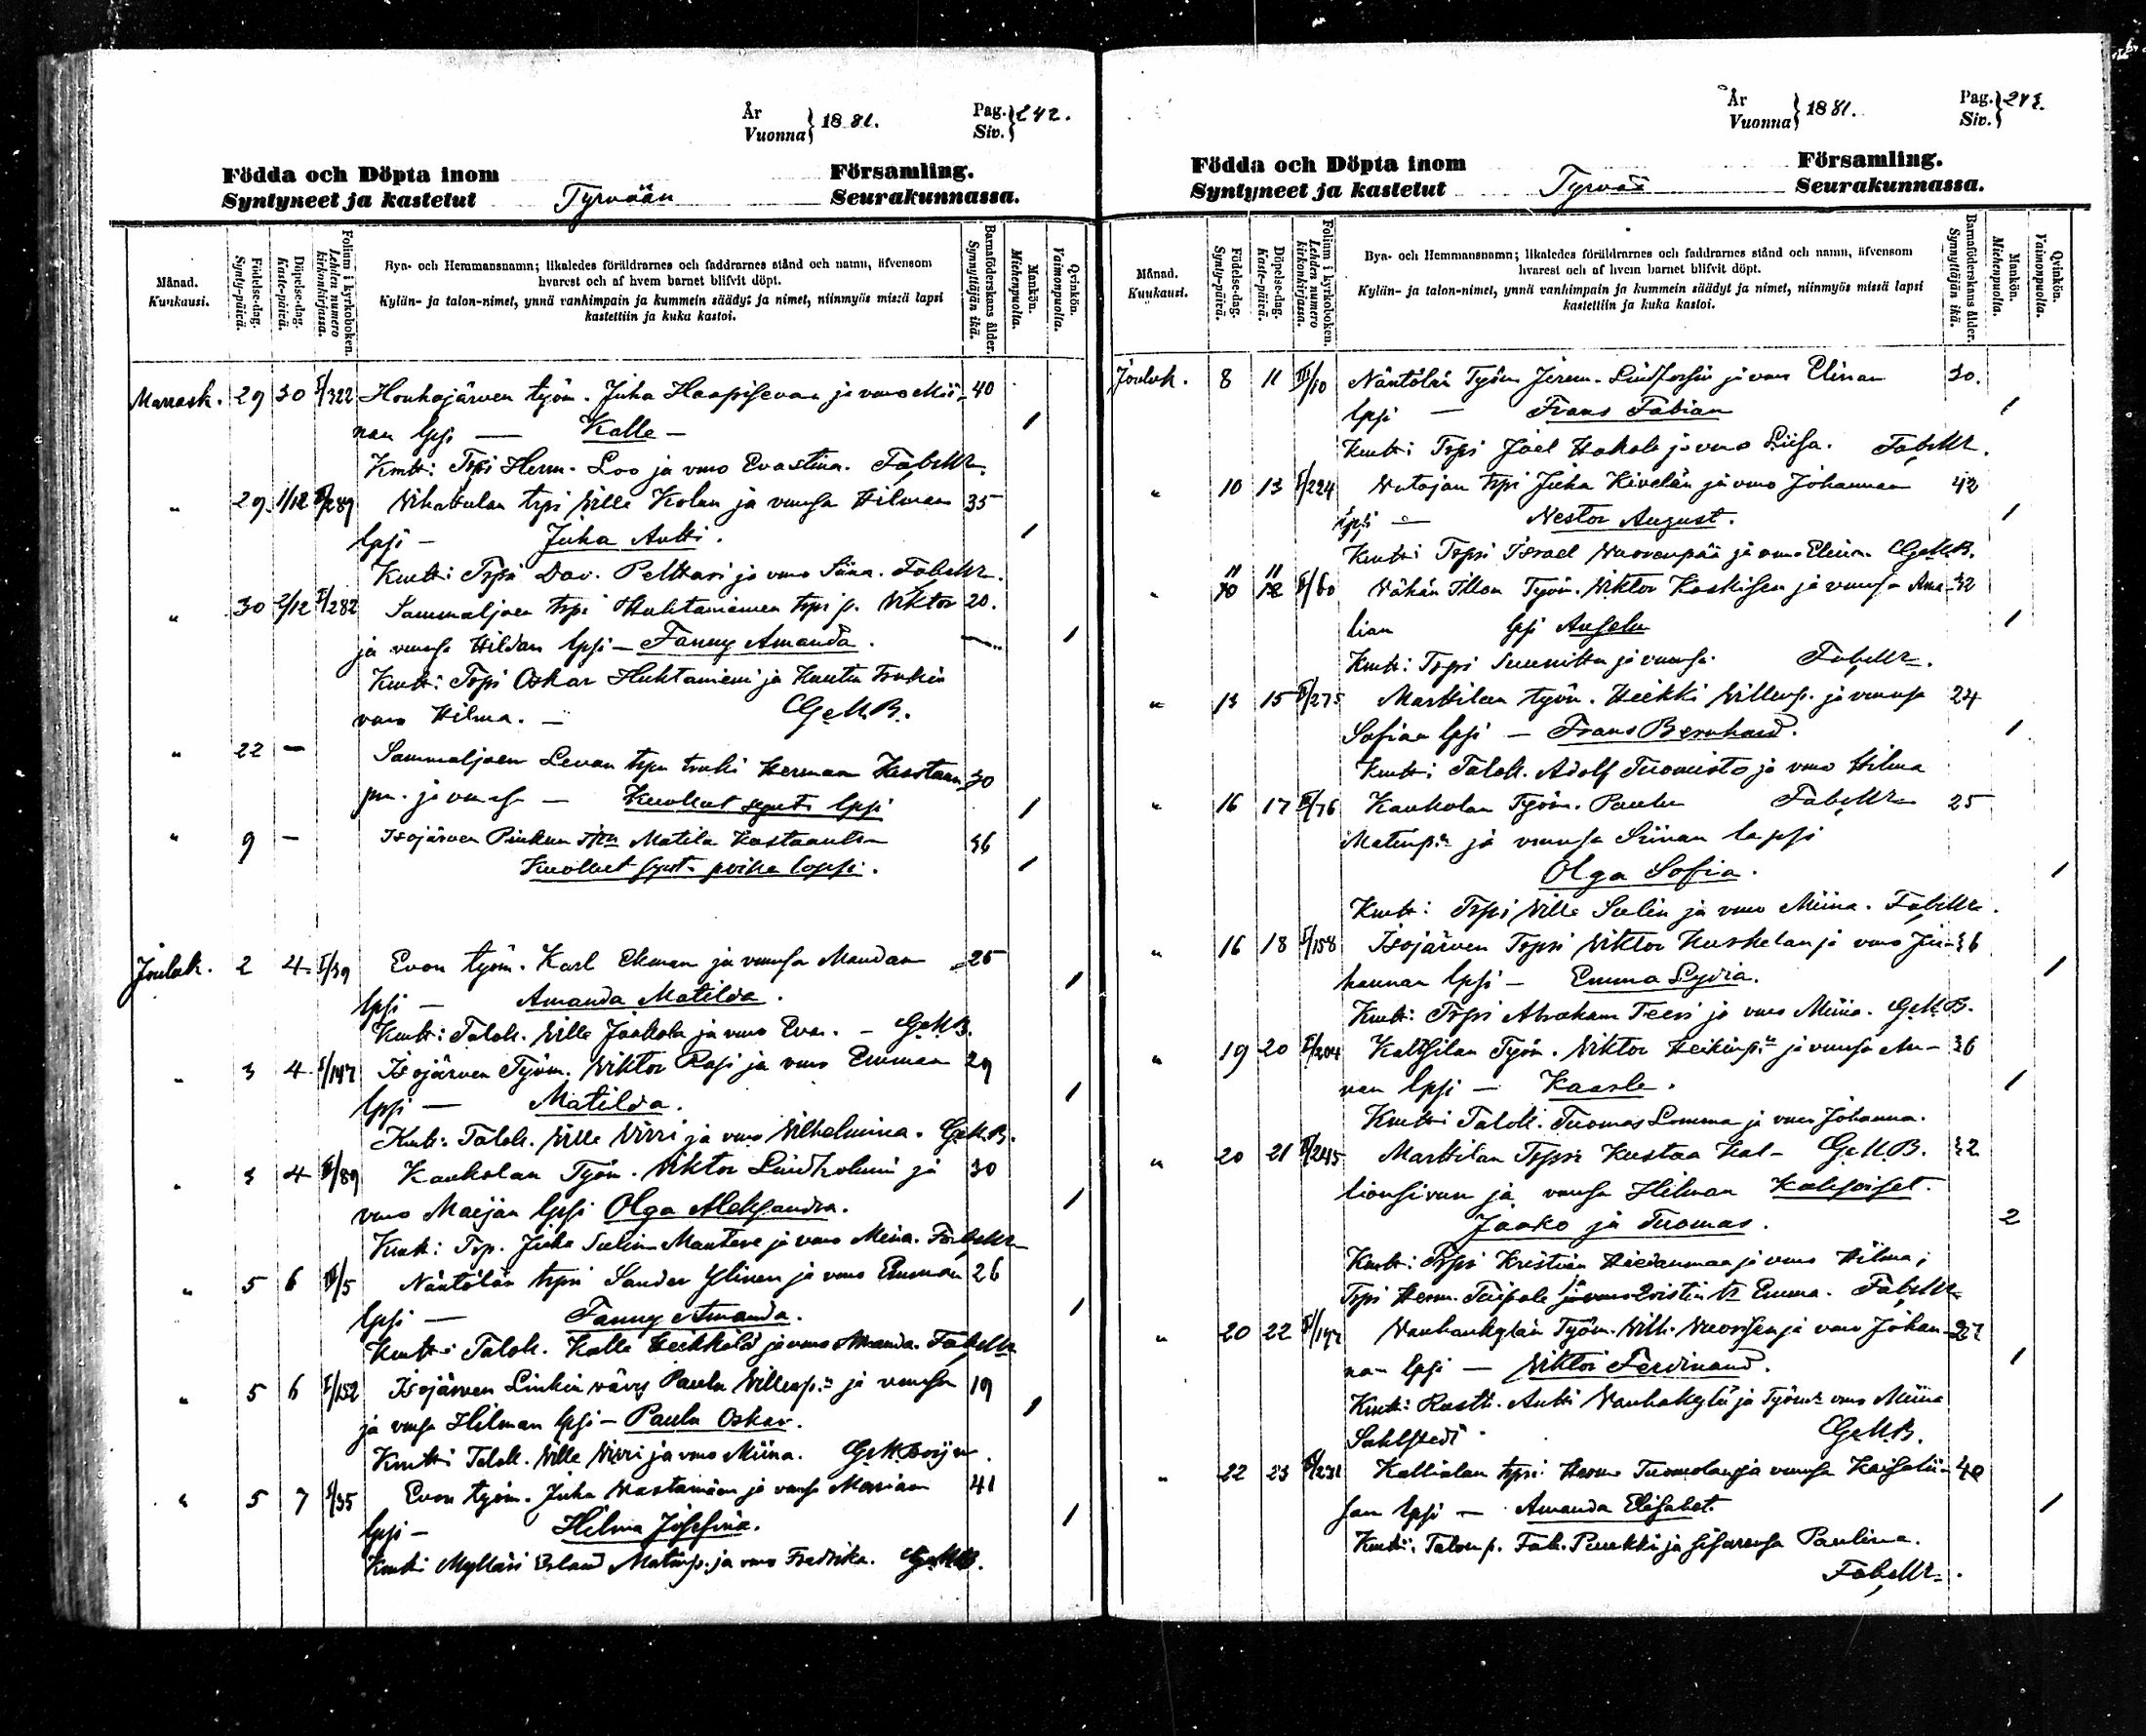 År
Vuonna } 1881.
Pag.
Siv. } 242.
Födda och Döpta inom Församling.
Syntyneet ja kastetut Tyrvään Seurakunnassa.
Månad.
Kuukausi.
Födelse-dag.
Synty-päivä.
Döpelse-dag.
Kaste-päivä.
Folium i kyrkoboken.
Lehden numero kirkonkirjassa.
Bya- och Hemmansnamn; likaledes föräldrarnes och faddrarnes stånd och namn, äfvensom
hvarest och af hvem barnet blifvit döpt.
Kylän- ja talon-nimet, ynnä vanhimpain ja kummein säädyt ja nimet, niinmyös missä lapsi
kastettiin ja kuka kastoi.
Barnaföderskans ålder.
Synnyttäjän ikä.
Mankön.
Miehenpuolta.
Qvinkön.
Vaimonpuolta.
Marrask. 29 30 I/322 Houhajärven työm. Juha Haapisevan ja vmo Mii- 40
nan lpsi — Kalle — 1
Kmtt: Trpi Herm. Loo ja vmo Evastina.
" 29 1/12 Ville Kolun ja vmnsa Hilman 35
lpsi — Juha Antti. 1
Kmtt: Trpi Dav. Pelttari ja vmo Siina.
" 30 2/12 I/282 Sammaljoen trpi Huhtaniemen trpi p. Viktor 20.
ja vmnsa Hildan lpsi — Fanny Amanda. 1
Kmtt: Trpi Oskar Huhtaniemi ja
vmo Hilma. — G.M.B.
" 22 — Sammaljoen Levan Herman Kustaan 30
p:n ja vmnsa — Kuollut synt. lpsi 1
" 9 — Isojärven Matila Kustaantr. 36
Kuollut synt. poika lapsi. 1
Jouluk. 2 4 I/39 Evon työm. Karl Ekman ja vmnsa Mandan 25
lpsi — Amanda Matilda. 1
Kmtt: Talok. Ville Jaakola ja vmo Eva. — G.M.B.
" 3 4 I/147 Isojärven Työm. Viktor Rasi ja vmo Emman 29
lpsi — Matilda. 1
Kmtt: Talok. Ville Virri ja vmo Vilhelmina. G.M.B.
" 3 4 III/89 Kaukolan Työm. Viktor Lindholmin ja 30
vmo Maijan lpsi Olga Aleksandra. 1
Kmtt: Trp. Juha Selin Mantere ja vmo Miina.
" 5 6 III/5 Näntölän trpi Sander Ylinen ja vmo Emman 26
lpsi — Fanny Amanda. 1
Kmtt: Talok. Kalle Heikkilä ja vmo Amanda.
" 5 6 I/152 Isojärven Linkin Paulu Villenp:n ja vmnsa 19
ja vmsa Hilman lpsi — Paulu Oskar. 1
Kmtti Talok. Ville Virri ja vmo Miina.
" 5 7 I/35 Evon työm. Juha Vastamäen ja vmsa Marian 41
lpsi — Hilma Josefina. 1
Kmtti Mylläri Erland Matinp. ja vmo Fredrika. G.M.B.
År
Vuonna } 1881.
Pag.
Siv. } 243.
Födda och Döpta inom Församling.
Syntyneet ja kastetut Tyrvää Seurakunnassa.
Månad.
Kuukausi.
Födelse-dag.
Synty-päivä.
Döpelse-dag.
Kaste-päivä.
Folium i kyrkoboken.
Lehden numero kirkonkirjassa.
Bya- och Hemmansnamn; likaledes föräldrarnes och faddrarnes stånd och namn, äfvensom
hvarest och af hvem barnet blifvit döpt.
Kylän- ja talon-nimet, ynnä vanhimpain ja kummein säädyt ja nimet, niinmyös missä lapsi
kastettiin ja kuka kastoi.
Barnaföderskans ålder.
Synnyttäjän ikä.
Mankön.
Miehenpuolta.
Qvinkön.
Vaimonpuolta.
Jouluk. 8 11 III/10 Näntölän Työm. Jerem. Lindforsin ja vmo Elinan 30.
lpsi — Frans Fabian 1
Kmtt: Trpi Joel Hakala ja vmo Liisa.
" 10 13 I/224 Vatajan trpi Juha Kivelän ja vmo Johannan 42
lpsi — Nestor August. 1
Kmtti Trpi Israel Vuorenpää ja vmo Elina. G.M.B.
" 11 11 II/60 Vähän Illon Työm. Viktor Koskisen ja vmnsa Ama- 32
lian lpsi Anselm 1
Kmtt: Trpi ja vmnsa.
" 13 15 II/275 Marttilan työm. Heikki Villenp. ja vmnsa 24
Sofian lpsi — Frans Bernhard. 1
Kmtt: Talok. Adolf Tuomisto ja vmo Hilma
" 16 17 III/76 Kaukolan Työm. Paulu 25
Matinp:n ja vmnsa Siinan lapsi
Olga Sofia. 1
Kmtt: Trpi Ville Selin ja vmo Miina.
" 16 18 I/158 Isojärven Trpi Viktor Huskelan ja vmo Ju- 36
hannan lpsi — Emma Lydia. 1
Kmtt: Trpi Abraham Teeri ja vmo Miina. G.M.B.
" 19 20 I/204 Kaltsilan Työm. Viktor Heikinp:n ja vmnsa An- 36
nan lpsi — Kaarle. 1
Kmtti Talok. Tuomas Lomma ja vmo Johanna.
" 20 21 II/245 Marttilan Trpi Kustaa Kal- G.M.B. 32
lionsivun ja vmnsa Hilman Kaksoiset.
Jaako ja Tuomas. 2
Kmtt: Trpi Kristian Hiedanmaa ja vmo Hilma;
Trpi Herm. Emma.
" 20 22 Vanhankylän Työm. Vilh. Vuorisen ja vmo Johan- 27
nan lpsi — Viktor Ferdinand. 1
Kmtt: Rustt. Antti Vanhakylä ja Työm. vmo Miina
Sahlstedt G.M.B.
" 22 23 II/231 Kallialan trpi Herm. Tuomolan ja vmnsa Kaisalii- 40
san lpsi — Amanda Elisabet. 1
Kmtti. Talonp. Fab. ja sisarensa Paulina.